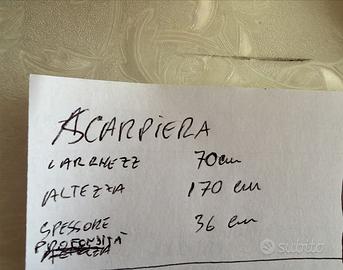 SCARPIERA
LARGHEZZ 70 cm
ALTEZZA 170 cm
SPESSORE 36 cm
PROFONDITÀ
subito